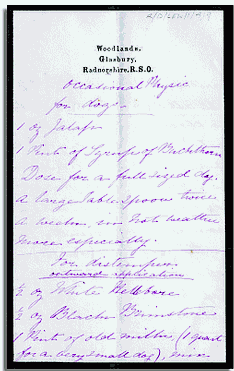 Woodlands,
Glasbury,
Radnorshire, R.S.O.
Occasional Physic
for dogs
1 oz Jalap
1 Pint of Syrup of Buckthorn
Dose for a full sized dog.
a large Table Spoon twice
a week, in hot weather
more especially.
For distemper
outward application
½ oz White Hellebore
½ oz Black Brimstone
1 Pint of old milk, (1 quart
for a very small dog), mix